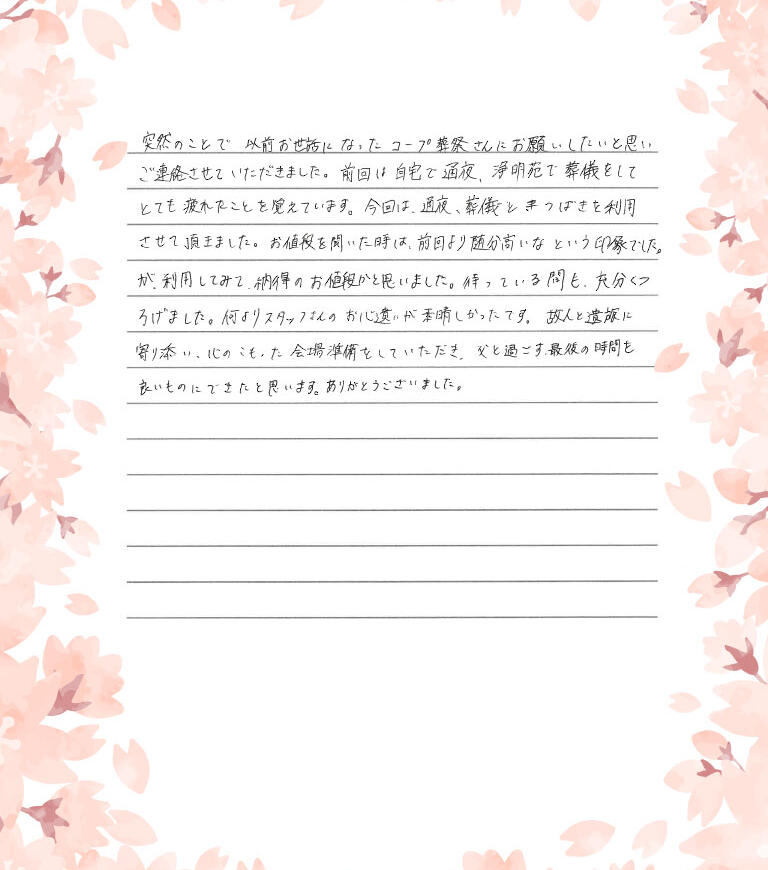 突然のことで 以前お世話になった コープ葬祭さんにお願いしたいと思い
ご連絡させていただきました。前回は自宅で通夜、浄明苑で葬儀をして
とても疲れたことを覚えています。今回は、通夜、葬儀と 寺つばさを利用
させて頂きました。お値段を聞いた時は、前回より随分高いな という印象でした。
が、利用してみて、納得のお値段かと思いました。待っている間も、充分くつ
ろげました。何よりスタッフさんの お心遣いが素晴しかったです。故人と遺族に
寄り添い、心のこもった会場準備をしていただき、父と過ごす最後の時間を
良いものにできたと思います。ありがとうございました。